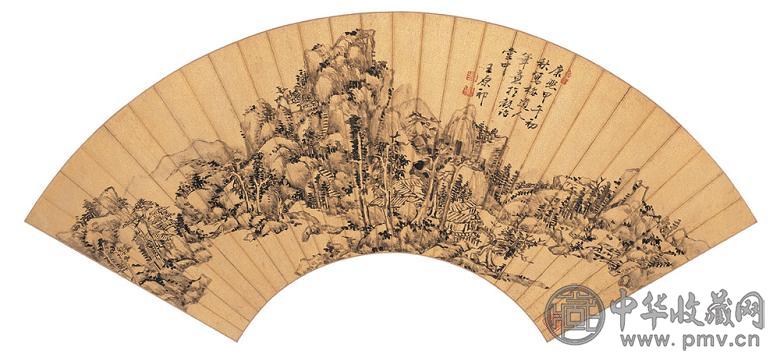 康熙甲午初
秋寫梅道人
筆意於穀詒
堂中
王原祁
中华收藏网
www.pmv.cn